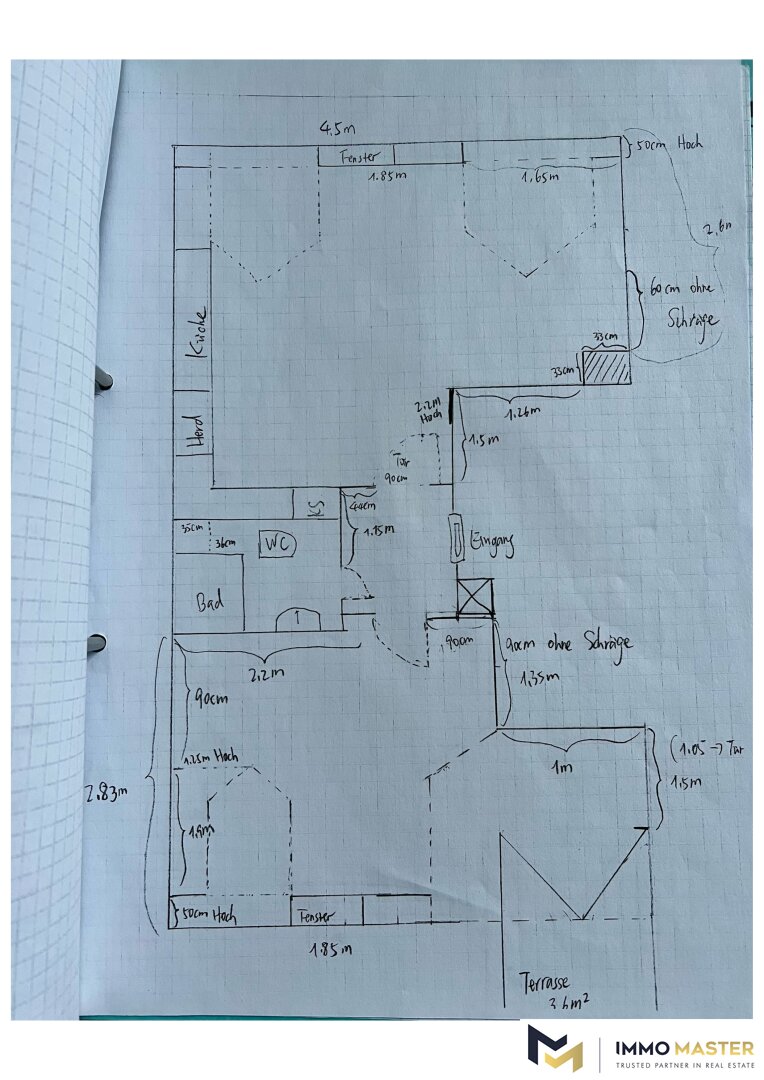 4.5m
50cm Hoch
Fenster
1.85m
1.65m
2.6m
60cm ohne
Schräge
33cm
33cm
Küche
2.2m
Hoch
1.26m
Herd
1.5m
Tür
90cm
KS
44cm
1.15m
35cm
36cm
WC
Eingang
Bad
90cm
90cm ohne Schräge
2.2m
1.35m
90cm
1.25m Hoch
1m
(1.05 → Tür
1.5m
2.83m
1.9m
50cm Hoch
Fenster
1.85m
Terrasse
3.6m²
IMMO MASTER
TRUSTED PARTNER IN REAL ESTATE